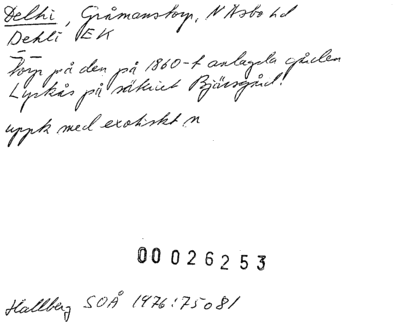 Delhi, Gråmanstorp, N Åsbo hd
Dehli EK
Torp på den på 1860-t anlagda gården
Lyckås på säteriet Bjärsgård.
uppk med exotiskt n
00026253
Hallberg SOÅ 1976:75081